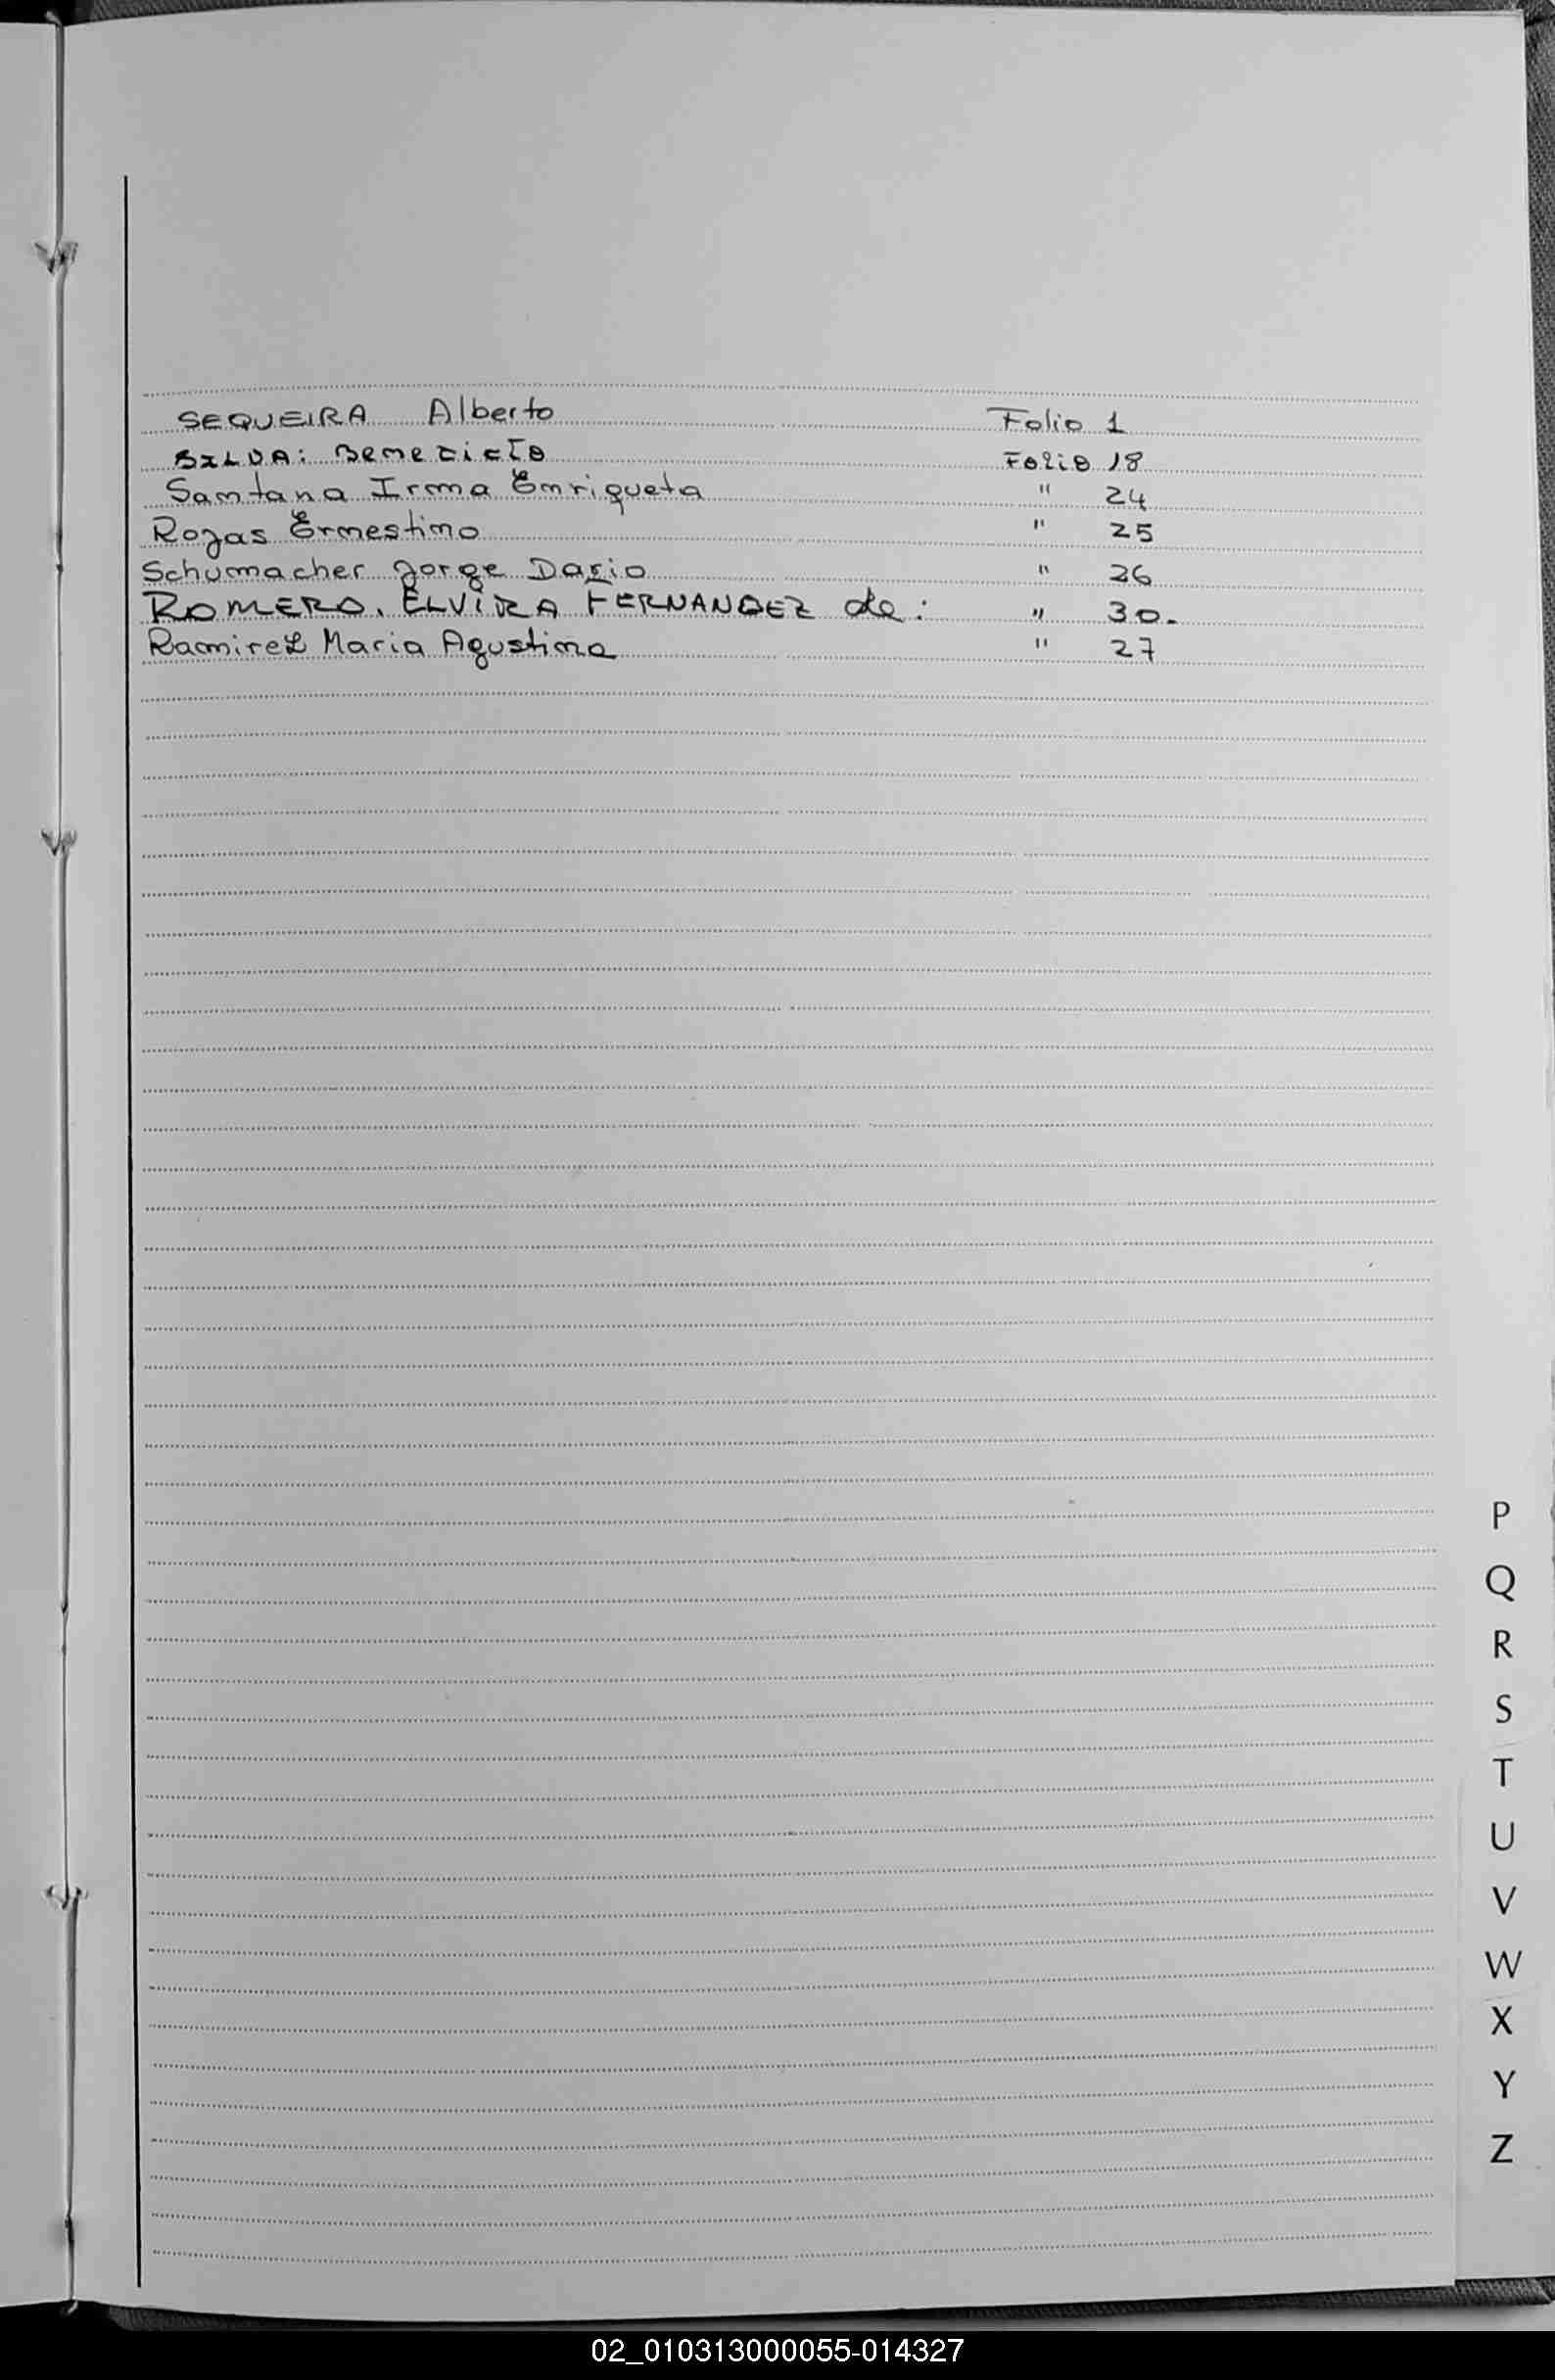 SEQUEIRA Alberto Folio 1
SILVA: Benedicto Folio 18
Santana Irma Enriqueta " 24
Rojas Ernestino " 25
Schumacher Jorge Dario " 26
ROMERO, ELVIRA FERNANDEZ de: " 30.
Ramirez Maria Agustina " 27
P
Q
R
S
T
U
V
W
X
Y
Z
02_010313000055-014327